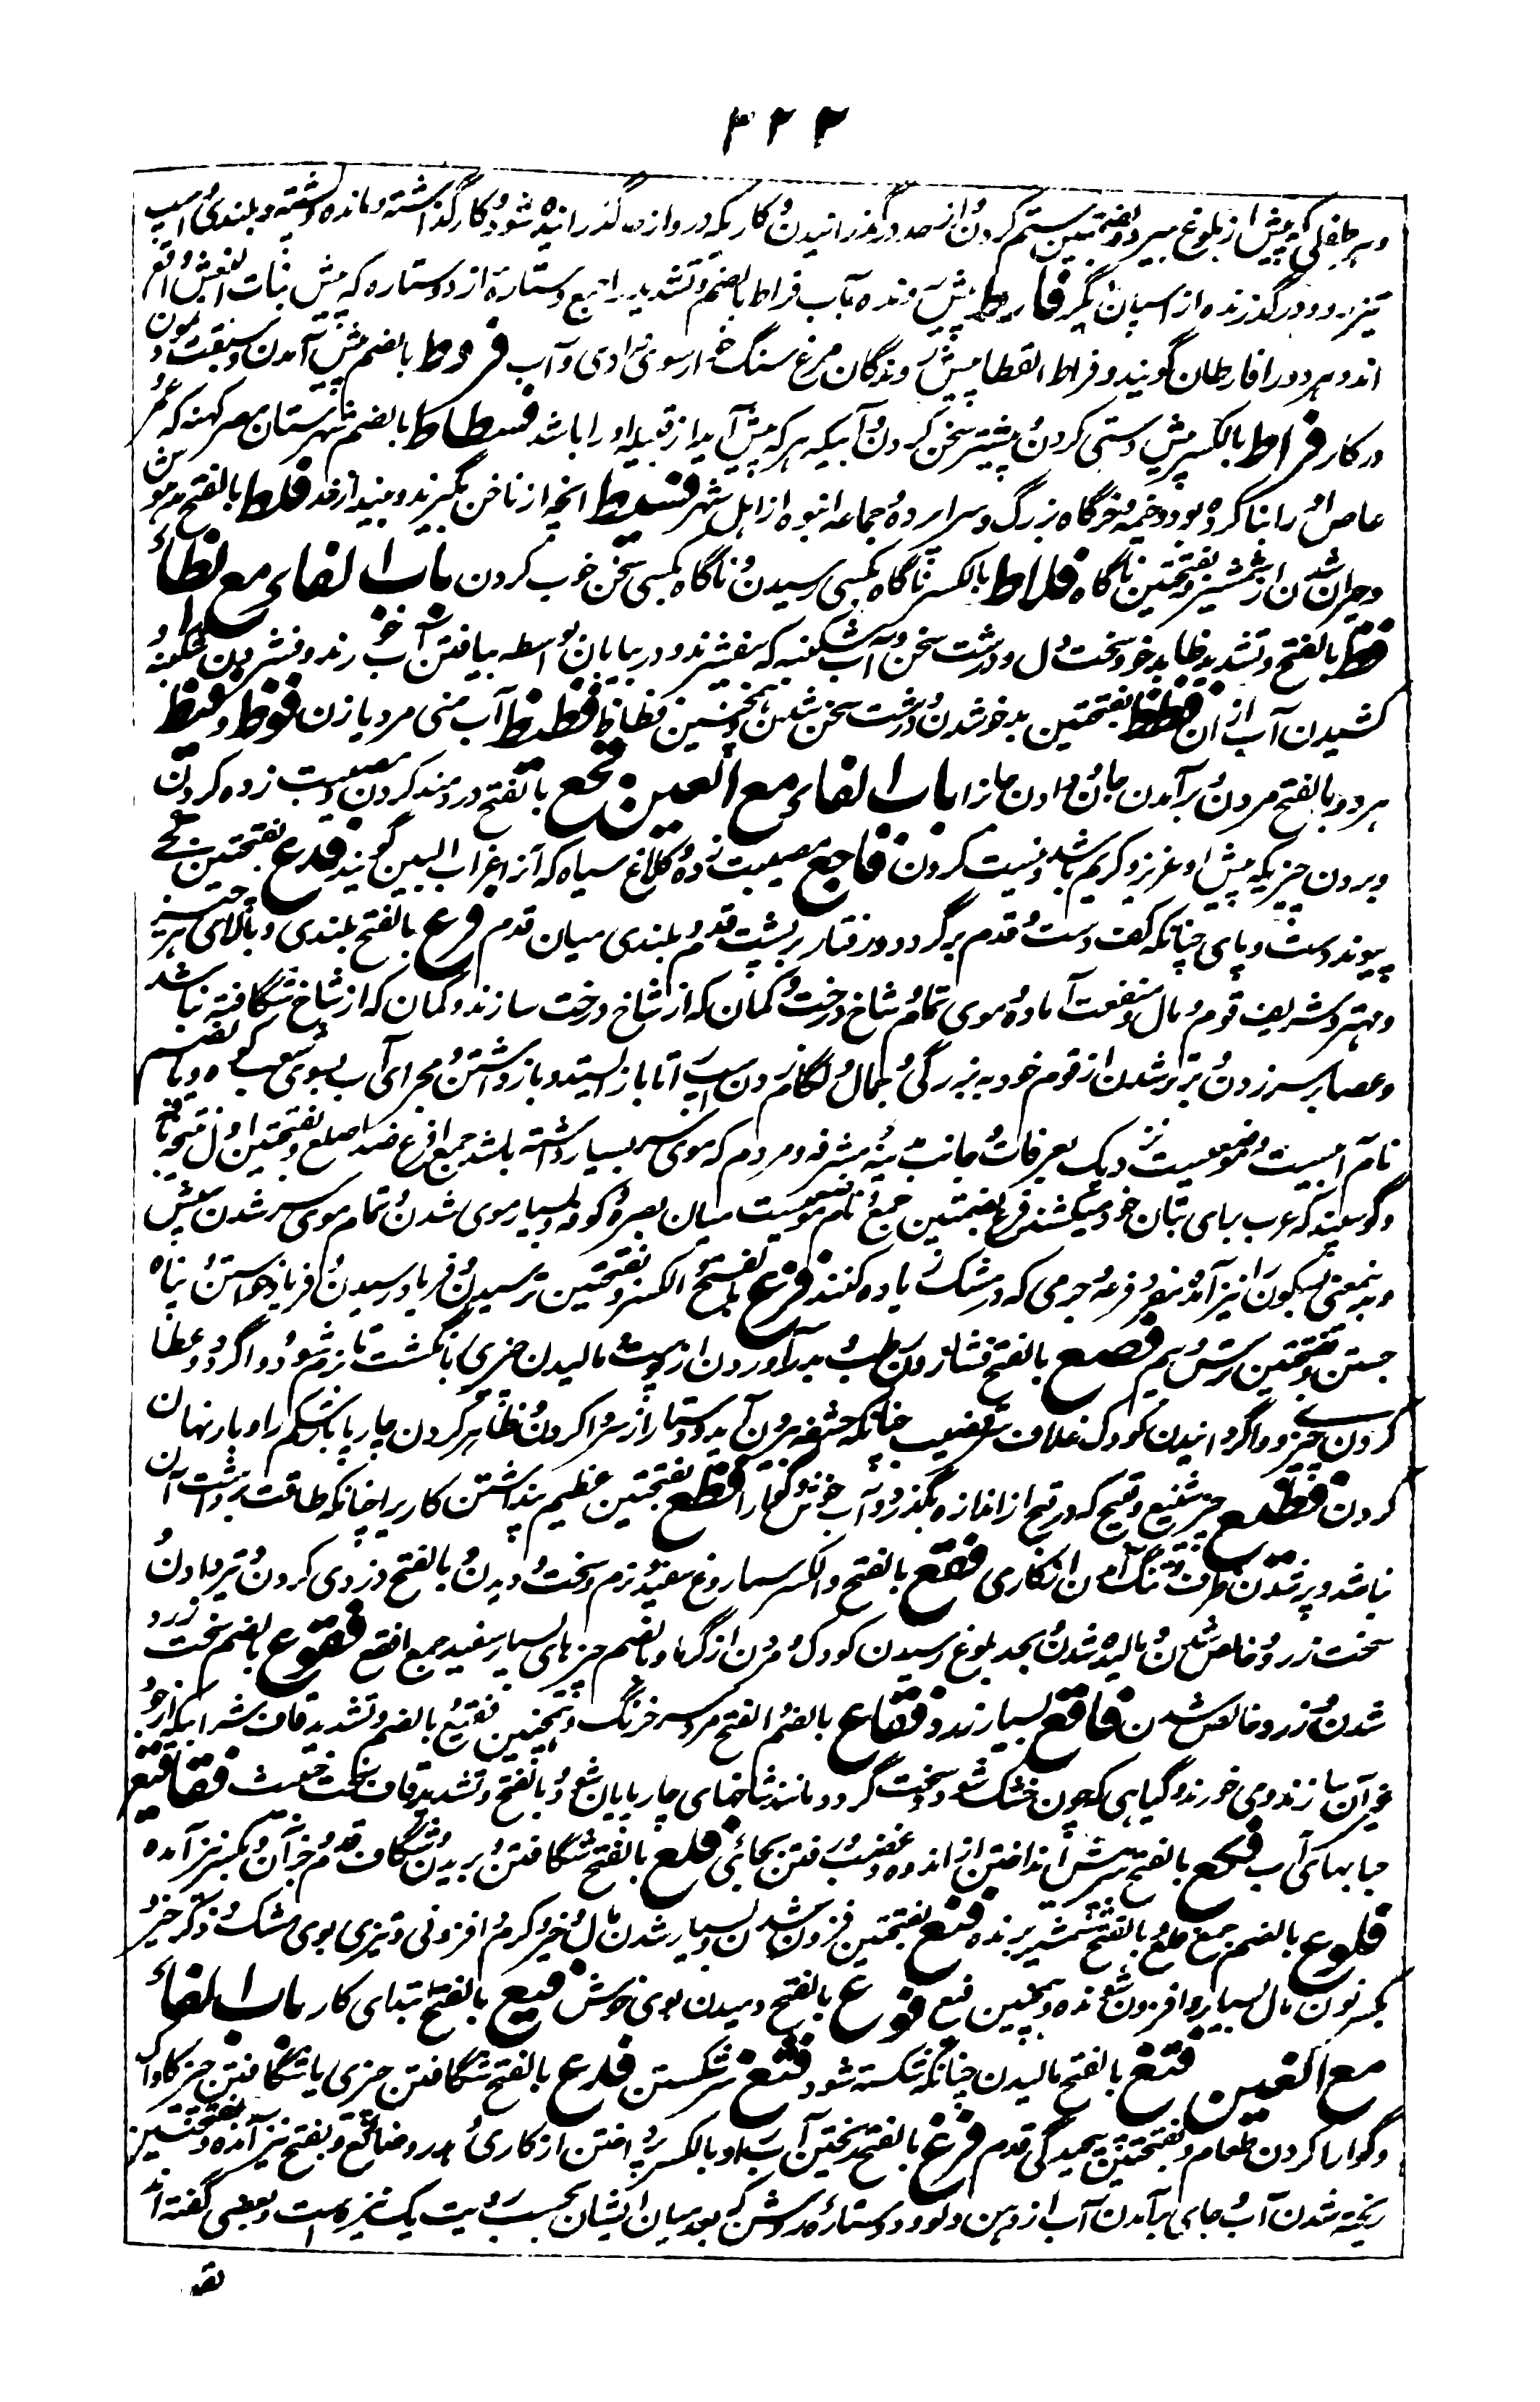 ۳۲۲
و هر طفلی که پیش از بلوغ بمیرد و بضمتین ستم کردن و از حد در گذرانیدن و کاریکه در و از حد گذرانیده شود و کار گذاشته و مانده و پشته و بلندی و اسب
تیز رو و در گذرنده از اسپان دیگر فارط پیش رونده بآب فراط بالضم و تشدید را جمع و ستاره از دو ستاره که پیش بنات النعش واقع
اند و هر دو را فارطان گویند و فراط القطا پیش روندگان مرغ سنگ خوار سوی وادی و آب فروط بالضم پیش آمدن و سبقت نمودن
در کار فراط بالکسر پیش دستی کردن و پیشتر سخن کردن و آبیکه هر که پیش آید از قبیله او را باشد فسطاط بالضم شهرستان مصر کهنه که عمر
عاص آن را بنا کرده بود و خیمه و خرگاه بزرگ و سراپرده و جماعه انبوه از اهل شهر فسیط انچه از ناخن بگیرند و بیندازند فلط بالفتح مدهوش
و حیران شدن از شمشیر و بفتحتین ناگاه فلاط بالکسر ناگاه بکسی رسیدن و ناگاه بکسی سخن خوب کردن باب الفاء مع الظاء
فظ بالفتح و تشدید ظا بدخو و سخت دل و درشت سخن و آب شکنبه که بیفشرند و در بیابان بواسطه نیافتن آب خورند و فشردن شکنبه و
کشیدن آب از ان فظظ بفتحتین بدخو شدن و درشت سخن شدن و همچنین فظاظة فظیظ آب منی مرد یا زن فوظ و فیظ
هر دو بالفتح مردن و برآمدن جان و دادن جان را باب الفاء مع العین فجع بالفتح دردمند کردن و مصیبت زده کردن
و بردن چیزیکه پیش او عزیز و کریم باشد و نیست کردن فاجع مصیبت زده و کلاغ سیاه که آنرا غراب البین گویند فدع بفتحتین کجی
پیوند دست و پای چنانکه کف دست و قدم برگردد و رفتار بر پشت قدم و بلندی میان قدم فرع بالفتح بلندی و بالای هر چیز
و مهتر و شریف قوم و مال و منفعت آماده و موی تمام و شاخ درخت و کمان که از شاخ درخت سازند و کمان که از شاخ شگافته نباشد
و عصا بر سر زدن و برتر شدن از قوم خود به بزرگی و جمال و لگام زدن اسپ را تا باز ایستد و باز داشتن و مجرای آب بسوی شعب کوه و بالضم
نام آبیست و موضعیست نزدیک بعرفات و جانب مشرقه و مردم که موی سر بسیار داشته باشد جمع افرع ضد اصلع و بفتحتین اول نتیجه ناقه
و گوسپند که عرب برای بتان خود میکشند فرع بضمتین جمع و نام موضعیست میان بصره و کوفه و بسیار موی شدن و تمام موی سر شدن و شپش
و بدینمعنی بسکون را نیز آمده مفرد فرعه و چرمی که در مشک زیاده کنند فزع بالفتح و الکسر و بفتحتین ترسیدن و فریاد رسیدن و فریاد خواستن و پناه
جستن و بفتحتین ترس و بیم فصع بالفتح فشاردن رطب و بدر آوردن از پوست و مالیدن چیزی بانگشت تا نرم شود و وا گردد و عطا
کردن چیزی و واگردانیدن کودک غلاف سر قضیب چنانکه حشفه بیرون آید و دستار از سر وا کردن و ظاهر کردن چارپا باشکم را و باز نهان
کردن فظیع چیز شنیع و قبیح که در قبح از اندازه بگذرد و آب خوش و گوارا فظع بفتحتین عظیم پنداشتن کاریرا چنانکه طاقت برداشت آن
نباشد و پر شدن ظرف و تنگ آمدن از کاری فقع بالفتح و الکسر سماروغ سفید و نرم و سخت دیدن و بالفتح دزدی کردن و تیز دادن و
سخت زرد و خالص شدن و بالیده شدن و بحد بلوغ رسیدن کودک و مردن از گرما و بالضم چیزهای بسیار سفید جمع افقع فقوع بالضم سخت زرد
شدن و زرد و خالص شدن فاقع بسیار زرد فقاع بالضم و الفتح مرد سرخ رنگ و همچنین فقیع بالضم و تشدید قاف شرابیکه از جو و
غیر آن سازند و می خورند و گیاهی که چون خشک شود سخت گردد مانند شاخهای چارپایان شود و بالفتح و تشدید قاف سخت خبیث فقاقیع
حبابهای آب فکع بالفتح سر پیش انداختن از اندوه و غضب و رفتن بجائی فلع بالفتح شگافتن و بریدن و شگاف قدم و جز آن و بکسر نیز آمده
فلوع بالضم جمع فلع و بالفتح شمشیر برنده فنع بفتحتین فزون شدن و بسیار شدن مال و خیر و کرم و افزونی و تیزی بوی مشک و ذکر خیر و
بکسر نون مال بسیار و افزون شونده و همچنین فنیع فوع بالفتح دمیدن بوی خوش فیع بالفتح ابتدای کار باب الفاء
مع الغین فتغ بالفتح مالیدن چنانکه شکسته شود فثغ سر شکستن فدغ بالفتح شگافتن چیزی یا شگافتن چیز کاواک
و گوارا کردن طعام و بفتحتین پیچیدگی قدم فرغ بالفتح ریختن آب و بالکسر پرداختن از کاری و هدر و ضائع و بفتح نیز آمده و بفتحتین
ریخته شدن آب و جای برآمدن آب از دهن دلو و دو ستاره روشن که بعد میان ایشان بحسب رویت یک نیزه است و بعضی گفته اند
بقد